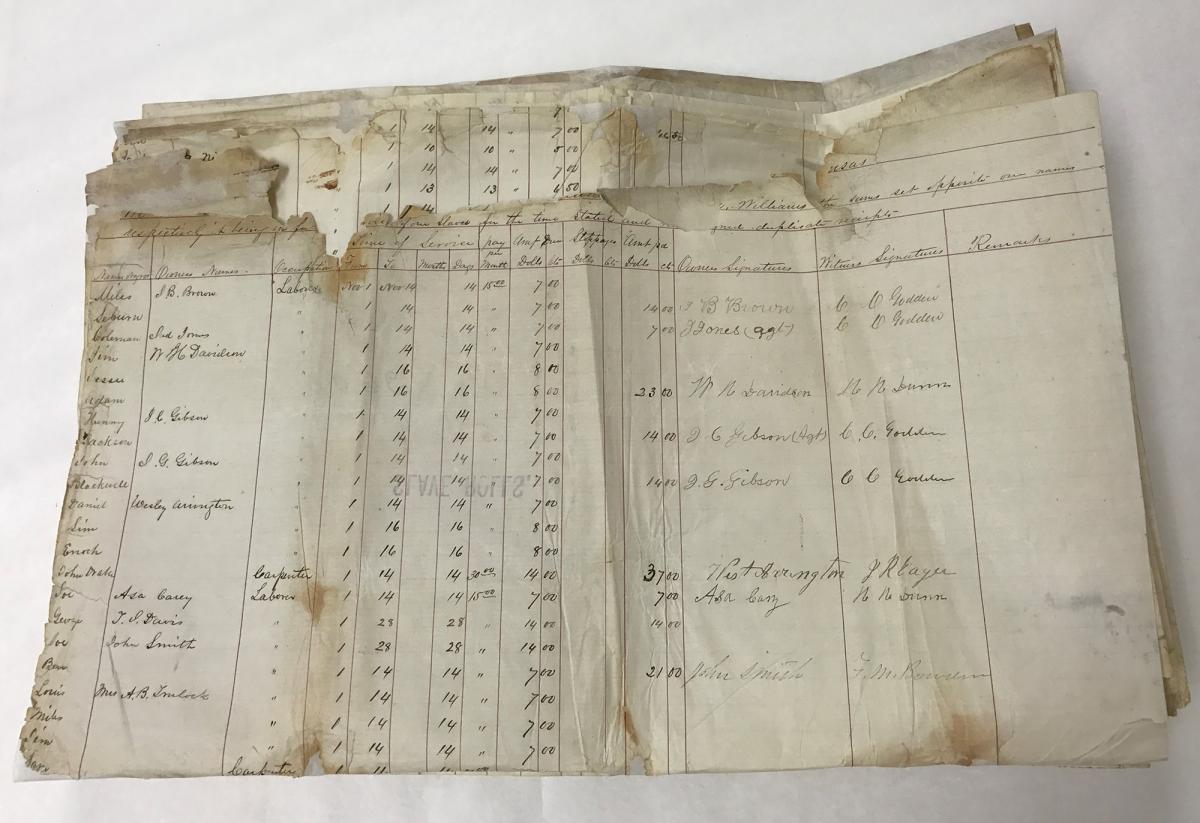 1 14 14 " 7 00
1 10 10 " 5 00
1 14 14 " 7 00
1 13 13 " 6 50
1 14
nsas
Williams the sums set opposite our names
respectively being in for of our Slaves for the time Stated and duplicate receipts
Time of Service pay per Month Amt Due Stoppages Amt pd
Names Negroes Owners Names Occupation From To Months Days Month Dolls Cts Dolls Cts Dolls cts Owners Signatures Witness Signatures Remarks
Miles J B. Brown Laborer Nov 1 Nov 14 14 15 00 7 00
Seburn " 1 14 14 " 7 00 14 00 J B Brown C C Godden
Coleman Jones " 1 14 14 " 7 00 7 00 J Jones (agt) C C Godden
Jim W H Davidson " 1 14 14 " 7 00
Jesse " 1 16 16 " 8 00
Adam " 1 16 16 " 8 00 23 00 W H Davidson N N Dunn
Henny J. C. Gibson " 1 14 14 " 7 00
Jackson " 1 14 14 " 7 00 14 00 J C Gibson (Agt) C. C. Godden
John J. G. Gibson " 1 14 14 " 7 00
Blackwell " 1 14 14 " 7 00 14 00 J. G. Gibson C C Godden
SLAVE ROLLS.
Daniel Wesley Arington " 1 14 14 " 7 00
Sim " 1 16 16 " 8 00
Enoch " 1 16 16 " 8 00
John Drake Carpenter 1 14 14 30 00 14 00 37 00 West Avrington J R Eayer
Joe Asa Carey Laborer 1 14 14 15 00 7 00 7 00 Asa Cary N N Dunn
George T. J. Davis " 1 28 28 " 14 00 14 00
Joe John Smith " 1 28 28 " 14 00
Ben " 1 14 14 " 7 00 21 00 John Smith F. M. Bowden
Louis Mrs A. B. " 1 14 14 " 7 00
Miles " 1 14 14 " 7 00
Jim " 1 14 14 " 7 00
Carpenter 1